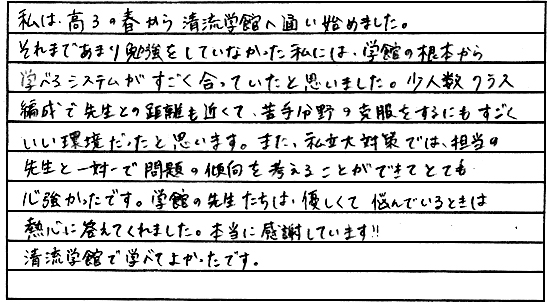 私は、高3の春から清流学館へ通い始めました。
それまであまり勉強をしていなかった私には、学館の根本から
学べるシステムがすごく合っていたと思いました。少人数クラス
編成で先生との距離も近くて、苦手分野の克服をするにもすごく
いい環境だったと思います。また、私立大対策では、担当の
先生と一対一で問題の傾向を考えることができてとても
心強かったです。学館の先生たちは、優しくて悩んでいるときは
熱心に答えてくれました。本当に感謝しています!!
清流学館で学べてよかったです。